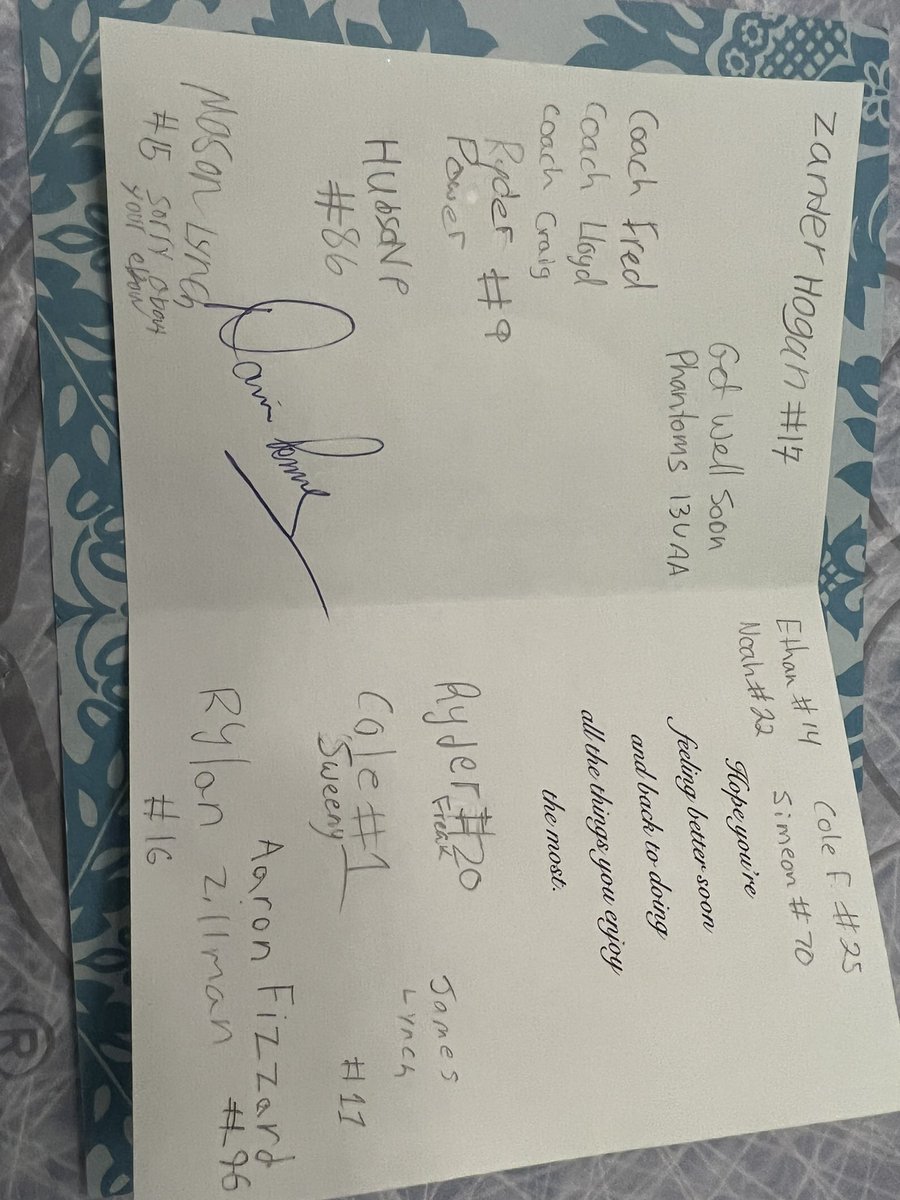 Zander Hogan #17
Get Well Soon
Phantoms 13UAA
Coach Fred
Coach Lloyd
Coach Craig
Ryder #9
Power
HUDSON P
#86
Mason Lynch
#15 Sorry about
your elbow
Cole F. #25
Ethan #14
Simeon #70
Noah #22
Hope you're
feeling better soon
and back to doing
all the things you enjoy
the most.
Ryder #20
Freak
James
Lynch
#11
Cole #1
Sweeny
Aaron Fizzard
#96
Rylan Zillman
#16
®